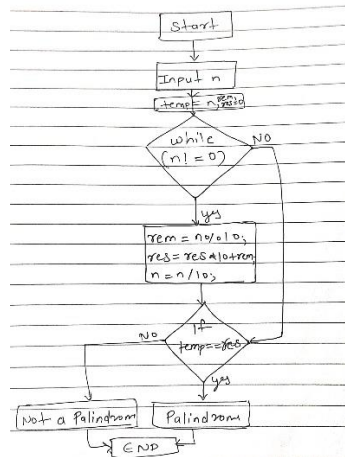 Start
Input n
temp = n, rem, res=0
while
(n! = 0)
NO
yes
rem = n%10;
res = res*10+rem
n = n/10;
If
temp==res
NO
yes
Not a Palindrom
Palindrome
END